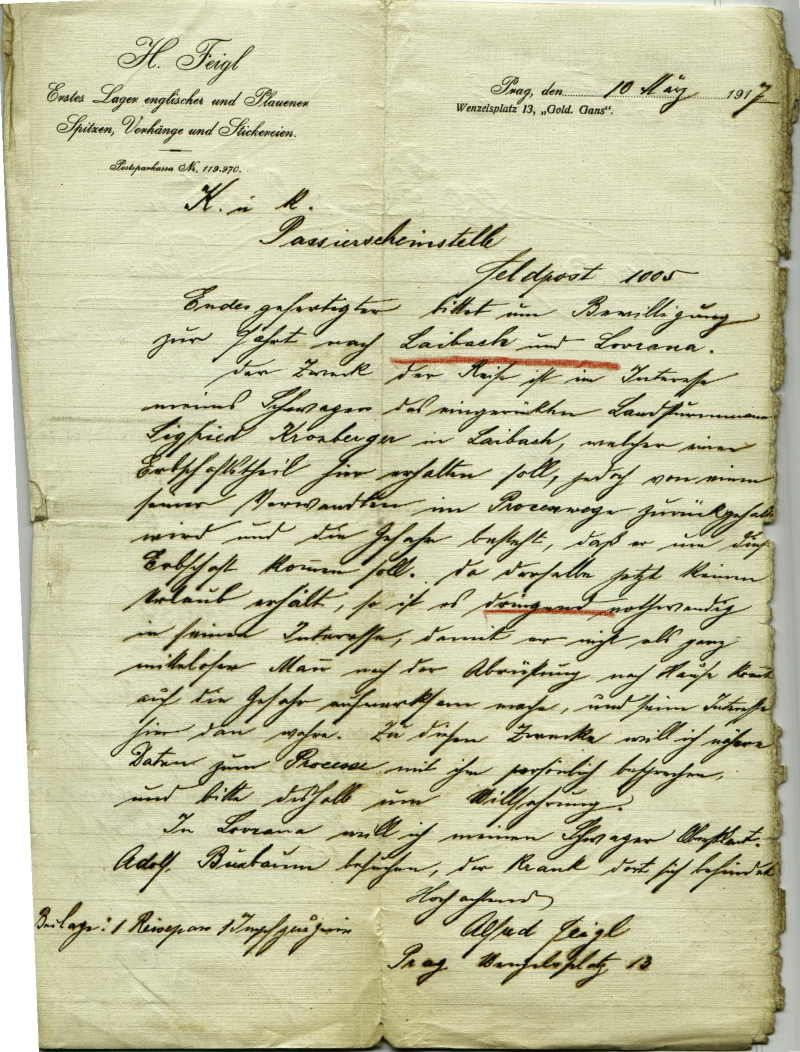 H. Feigl
Erstes Lager englischer und Plauener
Spitzen, Vorhänge und Stickereien.
Postsparkassa Nr. 119.970.
Prag, den 10 März 1917
Wenzelsplatz 13, „Gold. Gans“.
K. u k.
Passierscheinstelle
Feldpost 1005
Endesgefertigter bittet um Bewilligung
zur Fahrt nach Laibach und Lovrana.
Der Zweck der Reise ist im Interesse
meines Schwagers des eingerückten Landsturmmann
Sigfried Kronberger in Laibach, welcher einen
Erbschaftstheil hier erhalten soll, jedoch von einem
seiner Verwandten im Processwege zurückgehalt
wird und die Gefahr besteht, daß er um diese
Erbschaft kommen soll. Da derselbe jetzt keinen
Urlaub erhält, so ist es dringend nothwendig
in seinem Interesse, damit er nicht als ganz
mittelloser Mann nach der Abrüstung nach Hause kommt
auf die Gefahr aufmerksam mache, und seine Interesse
hier dan wahre. Zu diesem Zwecke will ich nähere
Daten zum Processe mit ihm persönlich besprechen,
und bitte deshalb um Willfahrung.
In Lovrana will ich meinen Schwager Oberstleut.
Adolf Buxbaum besuchen, der krank dort sich befindet
Hochachtend
Alfred Feigl
Prag Wenzelsplatz 13
Beilage: 1 Reisepass 1 Impfzeugnis